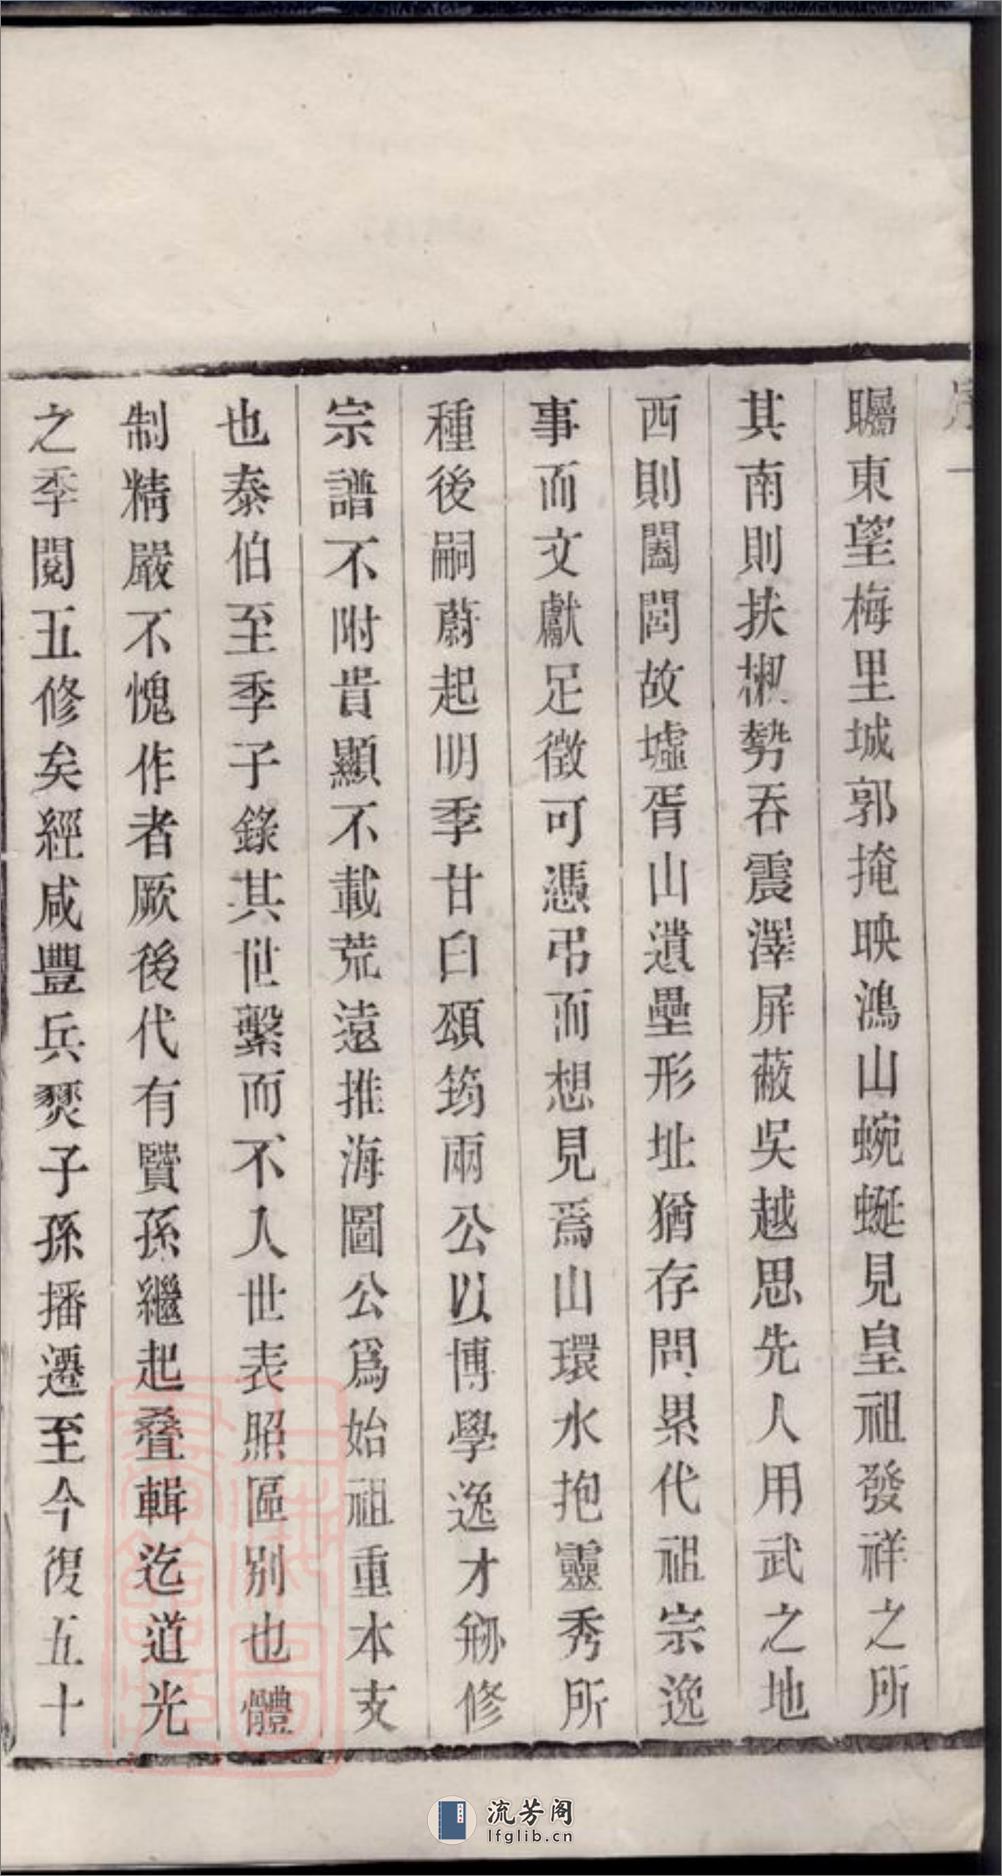 序一
矚東望梅里城郭掩映鴻山蜿蜒見皇祖發祥之所
其南則扶椒勢吞震澤屏蔽吳越思先人用武之地
西則闔閭故墟胥山遺壘形址猶存問累代祖宗逸
事而文獻足徵可憑弔而想見爲山環水抱靈秀所
種後嗣蔚起明季甘白頌筠兩公以博學逸才刱修
宗譜不附貴顯不載荒遠推海圖公爲始祖重本支
也泰伯至季子錄其世繫而不人世表照區别也體
制精嚴不愧作者厥後代有賢孫繼起叠輯迄道光
之季閱五修矣經咸豐兵燹子孫播遷至今復五十
流芳阁
lfglib.cn